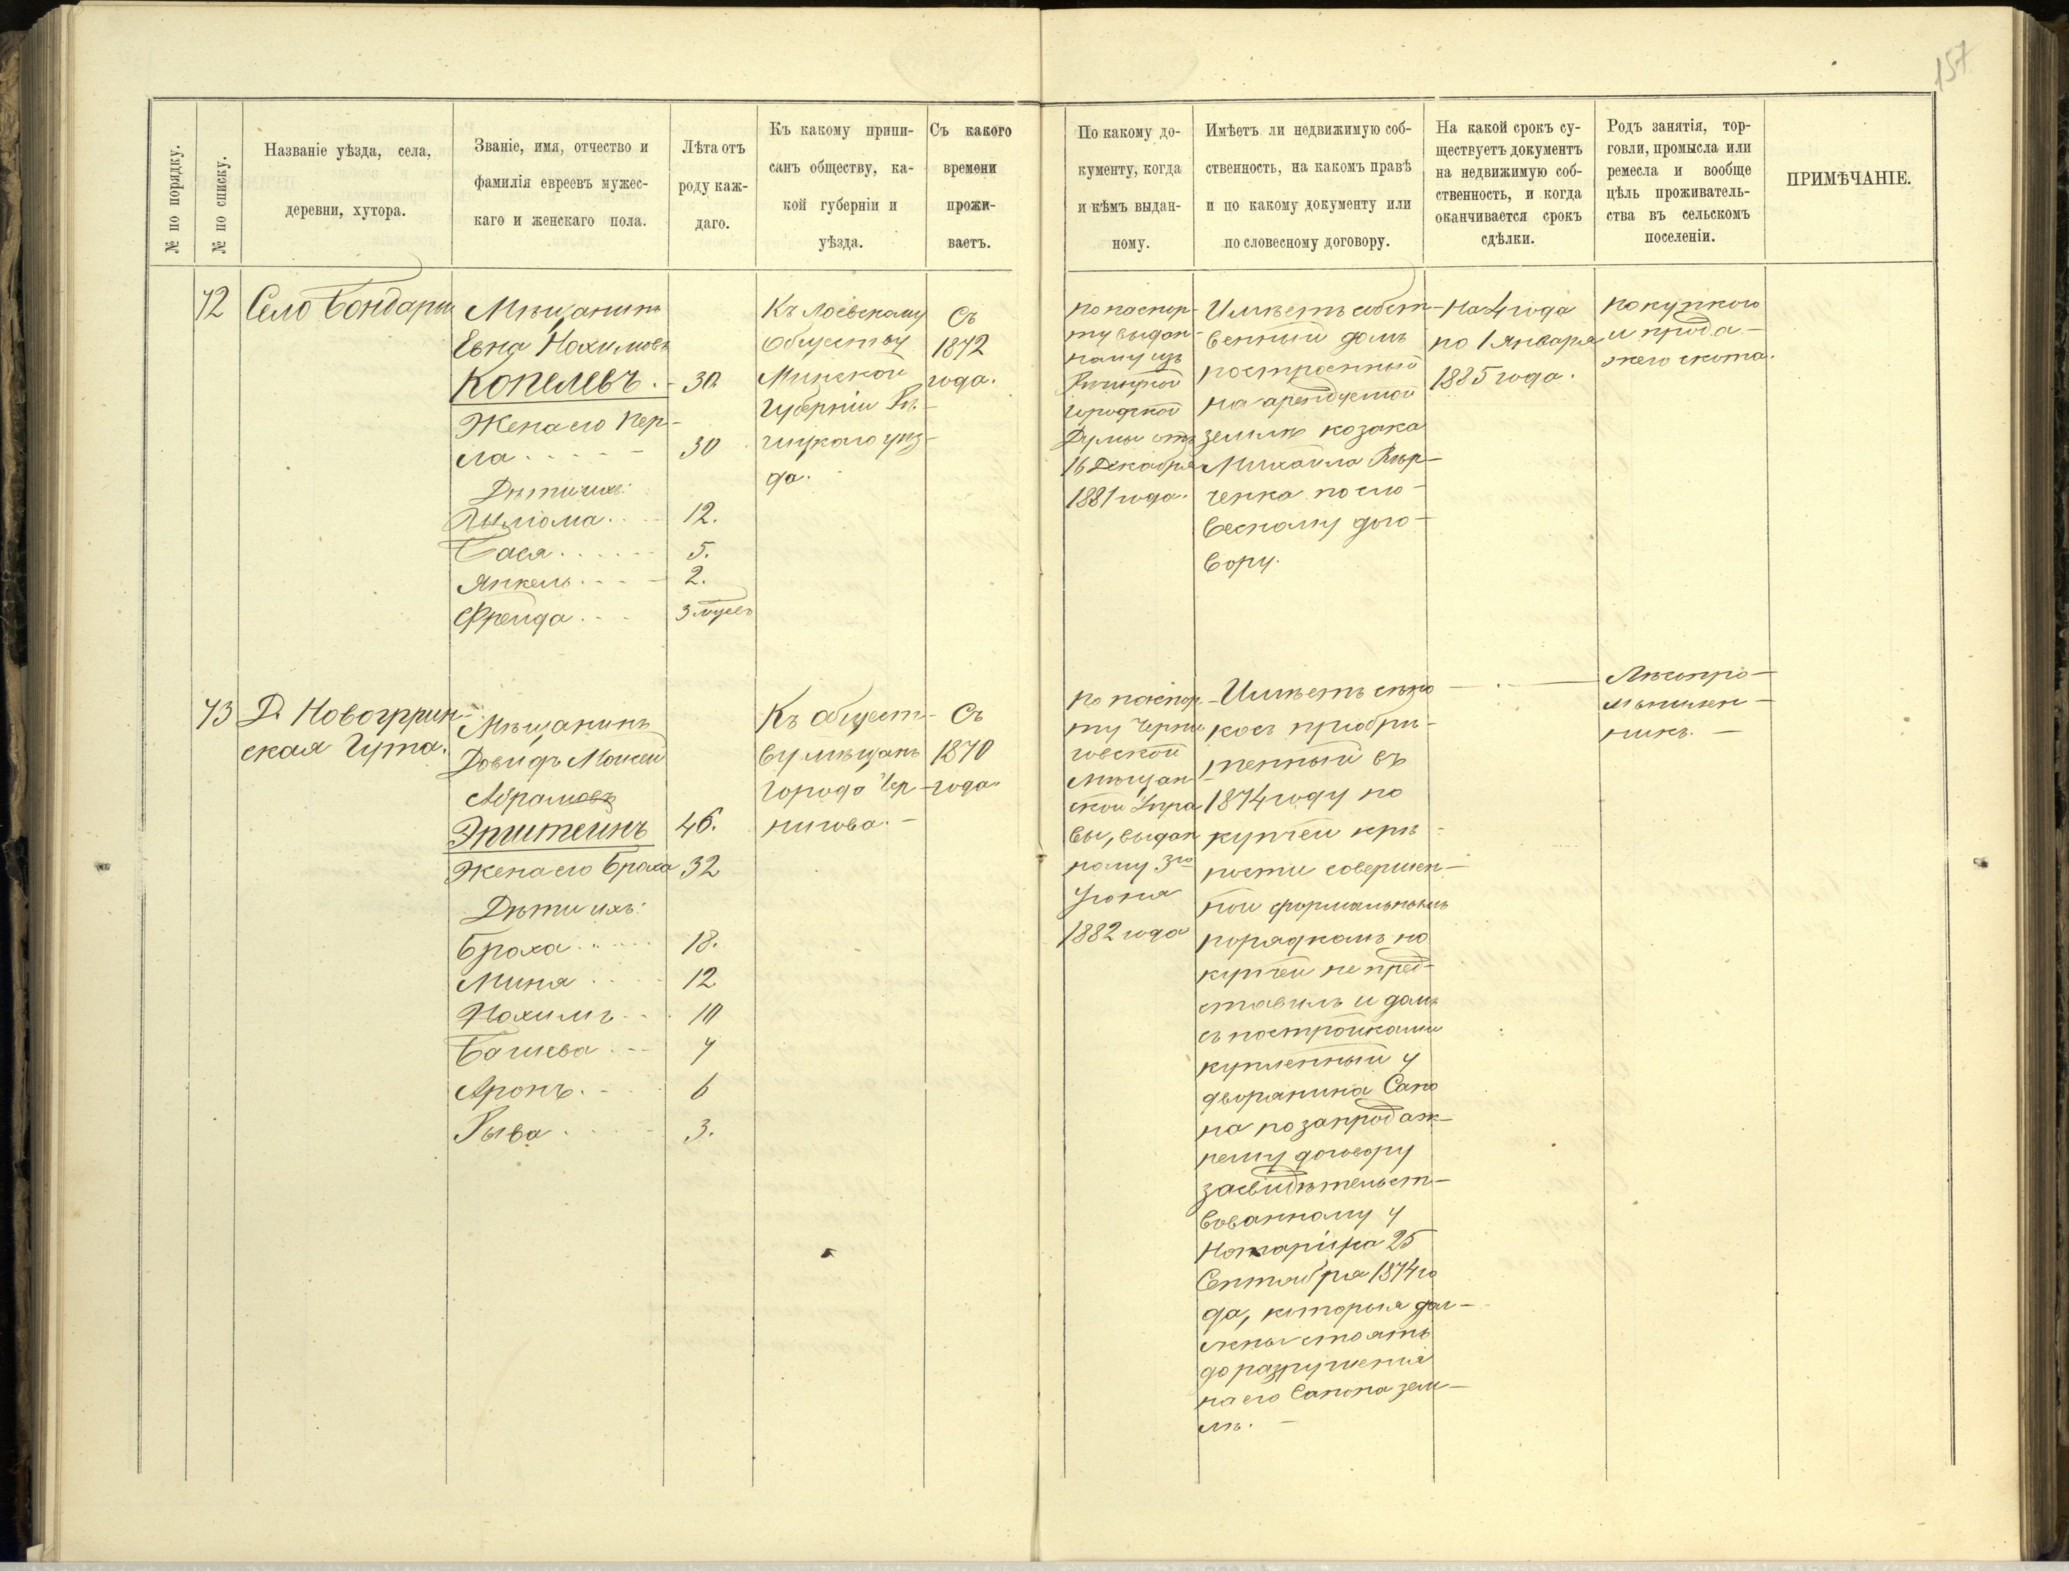 157
№ по порядку.
№ по списку.
Названіе уѣзда, села,
деревни, хутора.
Званіе, имя, отчество и
фамилія евреевъ мужес-
каго и женскаго пола.
Лѣта отъ
роду каж-
даго.
Къ какому припи-
санъ обществу, ка-
кой губерніи и
уѣзда.
Съ какого
времени
прожи-
ваетъ.
По какому до-
кументу, когда
и кѣмъ выдан-
ному.
Имѣетъ ли недвижимую соб-
ственность, на какомъ правѣ
и по какому документу или
по словесному договору.
На какой срокъ су-
ществуетъ документъ
на недвижимую соб-
ственность, и когда
оканчивается срокъ
сдѣлки.
Родъ занятія, тор-
говли, промысла или
ремесла и вообще
цѣль проживатель-
ства въ сельскомъ
поселеніи.
ПРИМѢЧАНІЕ.
72
Село Бондари
Мѣщанинъ
Евна Нохимовъ
Копелевъ. - 30
Жена его Пер-
ла - 30
Дѣти ихъ:
12.
Бася 5.
Янкель 2.
Фрейда 3 мѣсе
Къ Лоевскому
обществу
Минской
Губерніи Рѣ-
чицкаго уѣз-
да.
Съ
1872
года.
По паспор-
ту выдан-
ному изъ
Рѣчицкой
Городской
Думы отъ
16 Декабря
1881 года.
Имѣетъ собст-
венный домъ
построенный
на арендуемой
землѣ козака
Михаила
ченка по сло-
весному дого-
вору.
На 4 года
по 1 Января
1885 года.
Покупкою
и прода-
жею скота.
73
Д. Новогррин-
ская Гута.
Мѣщанинъ
Довидъ Мовшей
Абрамовъ
Эпштейнъ 46.
Жена его Браха 32
Дѣти ихъ:
Браха 18.
Миня 12
Нохимъ 10
Башева 7
Аронъ 6
Рыва 3.
Къ общест-
ву мѣщанъ
города Чер-
нигова. -
Съ
1870
года
По паспор-
ту Черни
говской
Мѣщан-
ской Упра
вы, выдан
ному 3го
Іюня
1882 года
Имѣетъ сѣно
косъ приобрѣ-
тенный въ
1874 году по
купчей крѣ-
пости совершен-
ной формальнымъ
порядкомъ но
купчей не пред-
ставилъ и домъ
съ постройками
купленный у
дворянина Сапо
на по запродаж-
нему договору
засвидѣтельст-
вованному у
Нотаріуса 25
Сентября 1874 го
да, которыя дол-
жны стоять
до разрушенія
на его Сапона зем-
лѣ. -
Лѣсопро-
мышлен-
никъ. -